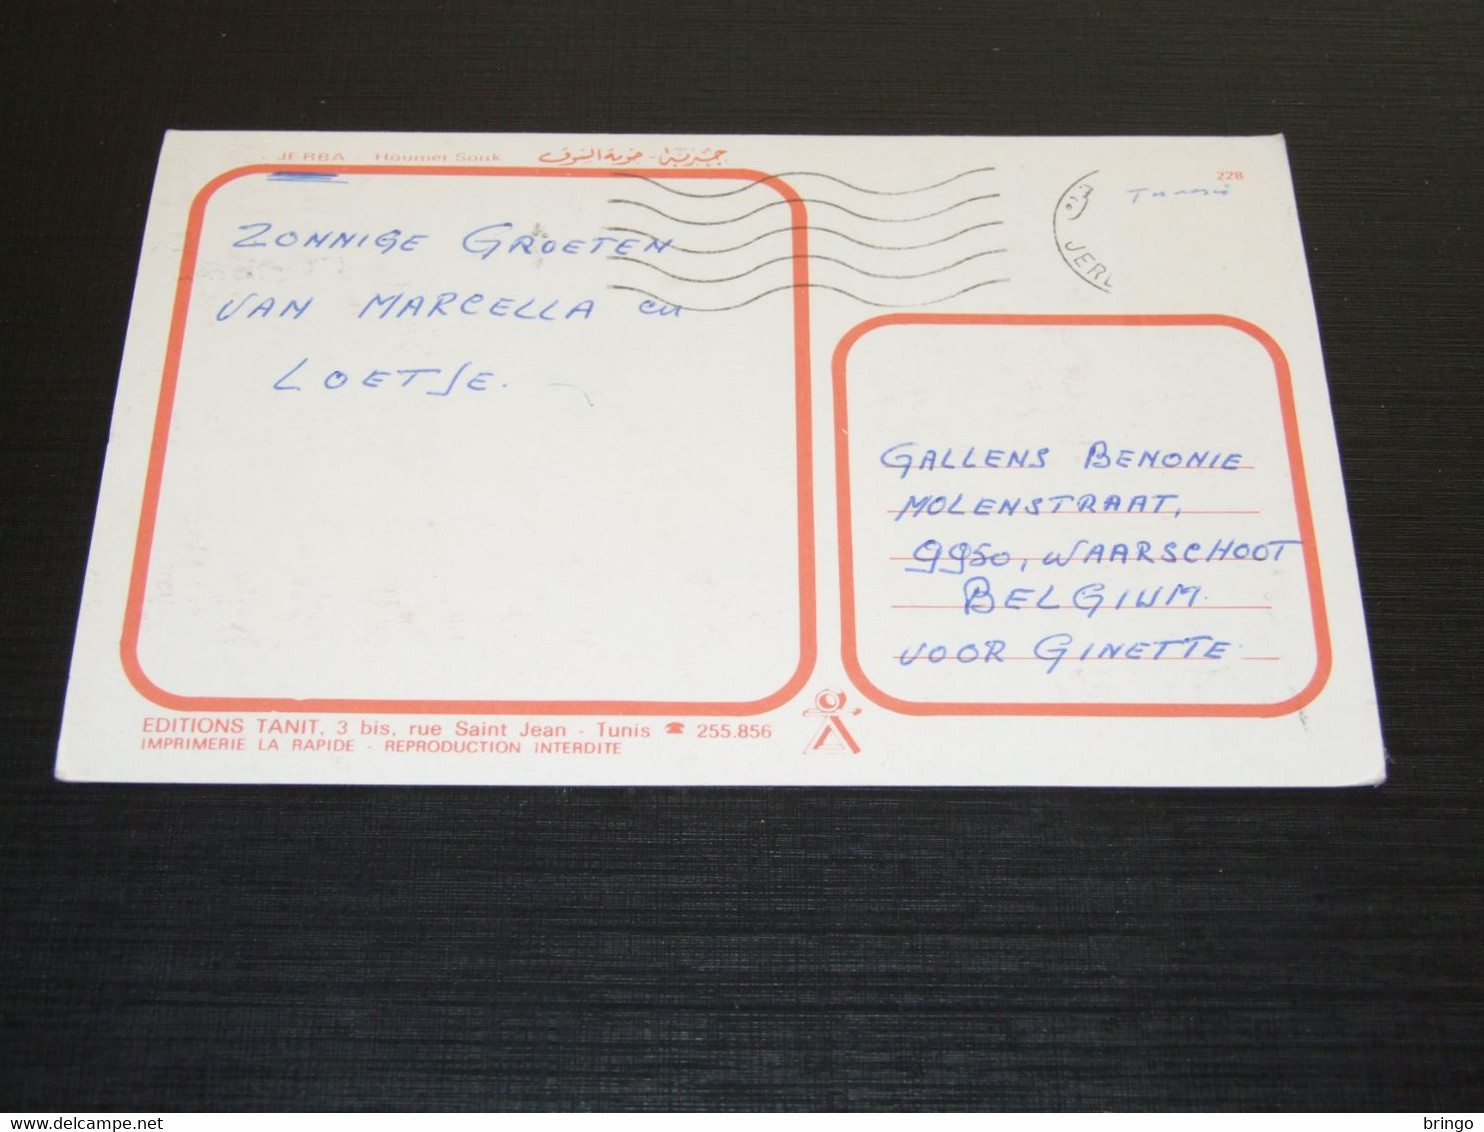 JERBA - Houmet Souk جزيرة - حومة السوق
228
Tunesië
JERB
ZONNIGE GROETEN
VAN MARCELLA en
LOETJE.
GALLENS BENONIE
MOLENSTRAAT,
9950, WAARSCHOOT
BELGIUM.
VOOR GINETTE
EDITIONS TANIT, 3 bis, rue Saint Jean - Tunis ☎ 255.856
IMPRIMERIE LA RAPIDE - REPRODUCTION INTERDITE
delcampe.net
bringo